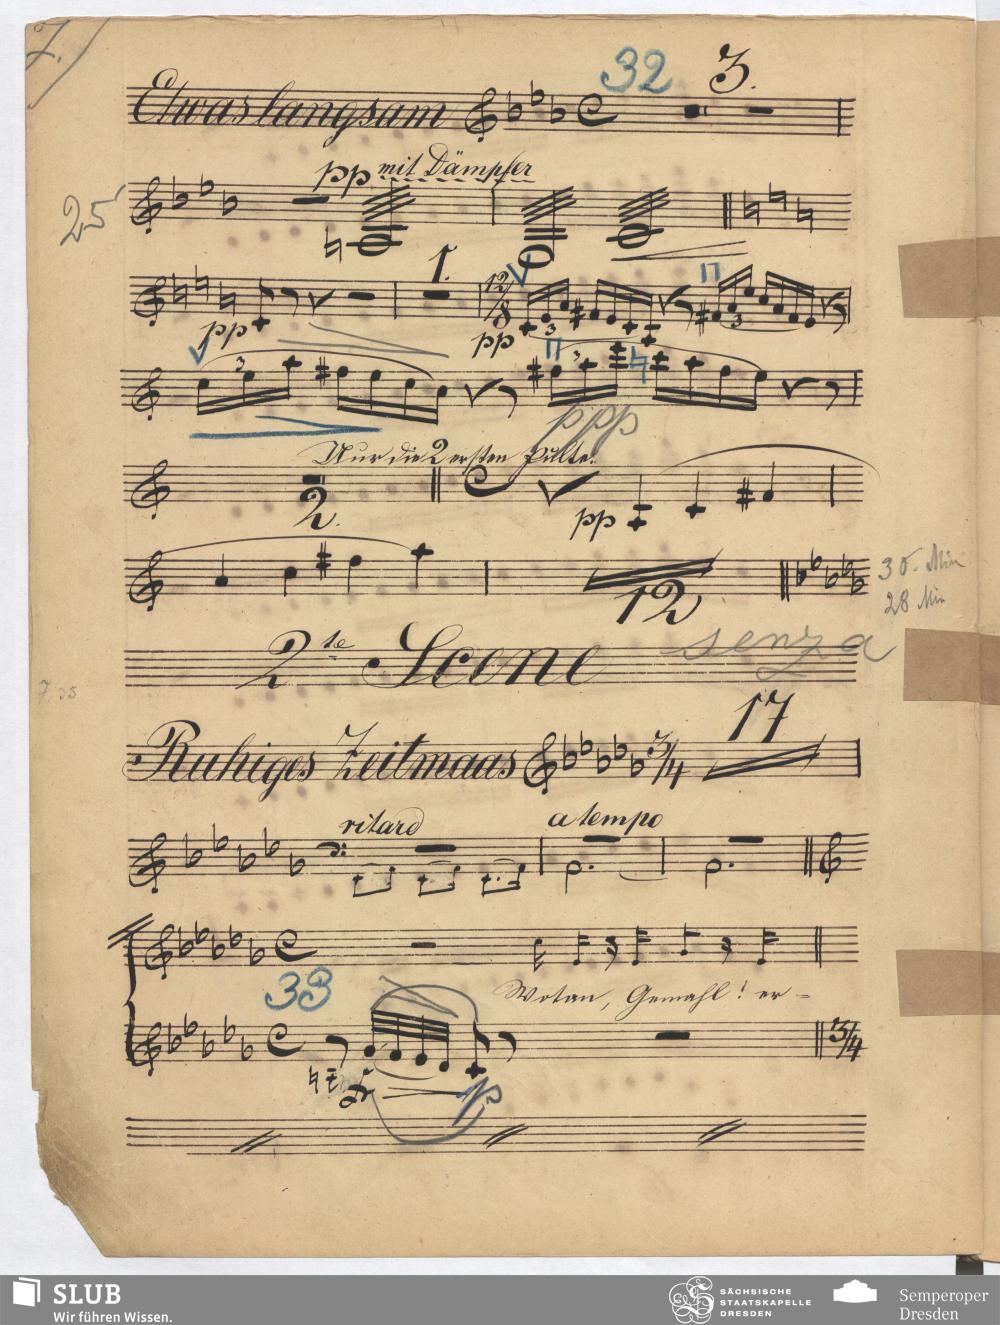 7.
32 3.
Etwas langsam
25'
pp mit Dämpfer
1.
pp 12/8 pp 3 3
3 3
ppp
Nur die 2 ersten Pulte.
2. pp
12
30. Min
28 Min
2te Scene senza
17
Ruhiges Zeitmaas 3/4
ritard a tempo
33
Wotan, Gemahl! er=
3/4
p
SLUB
Wir führen Wissen.
SÄCHSISCHE
STAATSKAPELLE
DRESDEN
Semperoper
Dresden